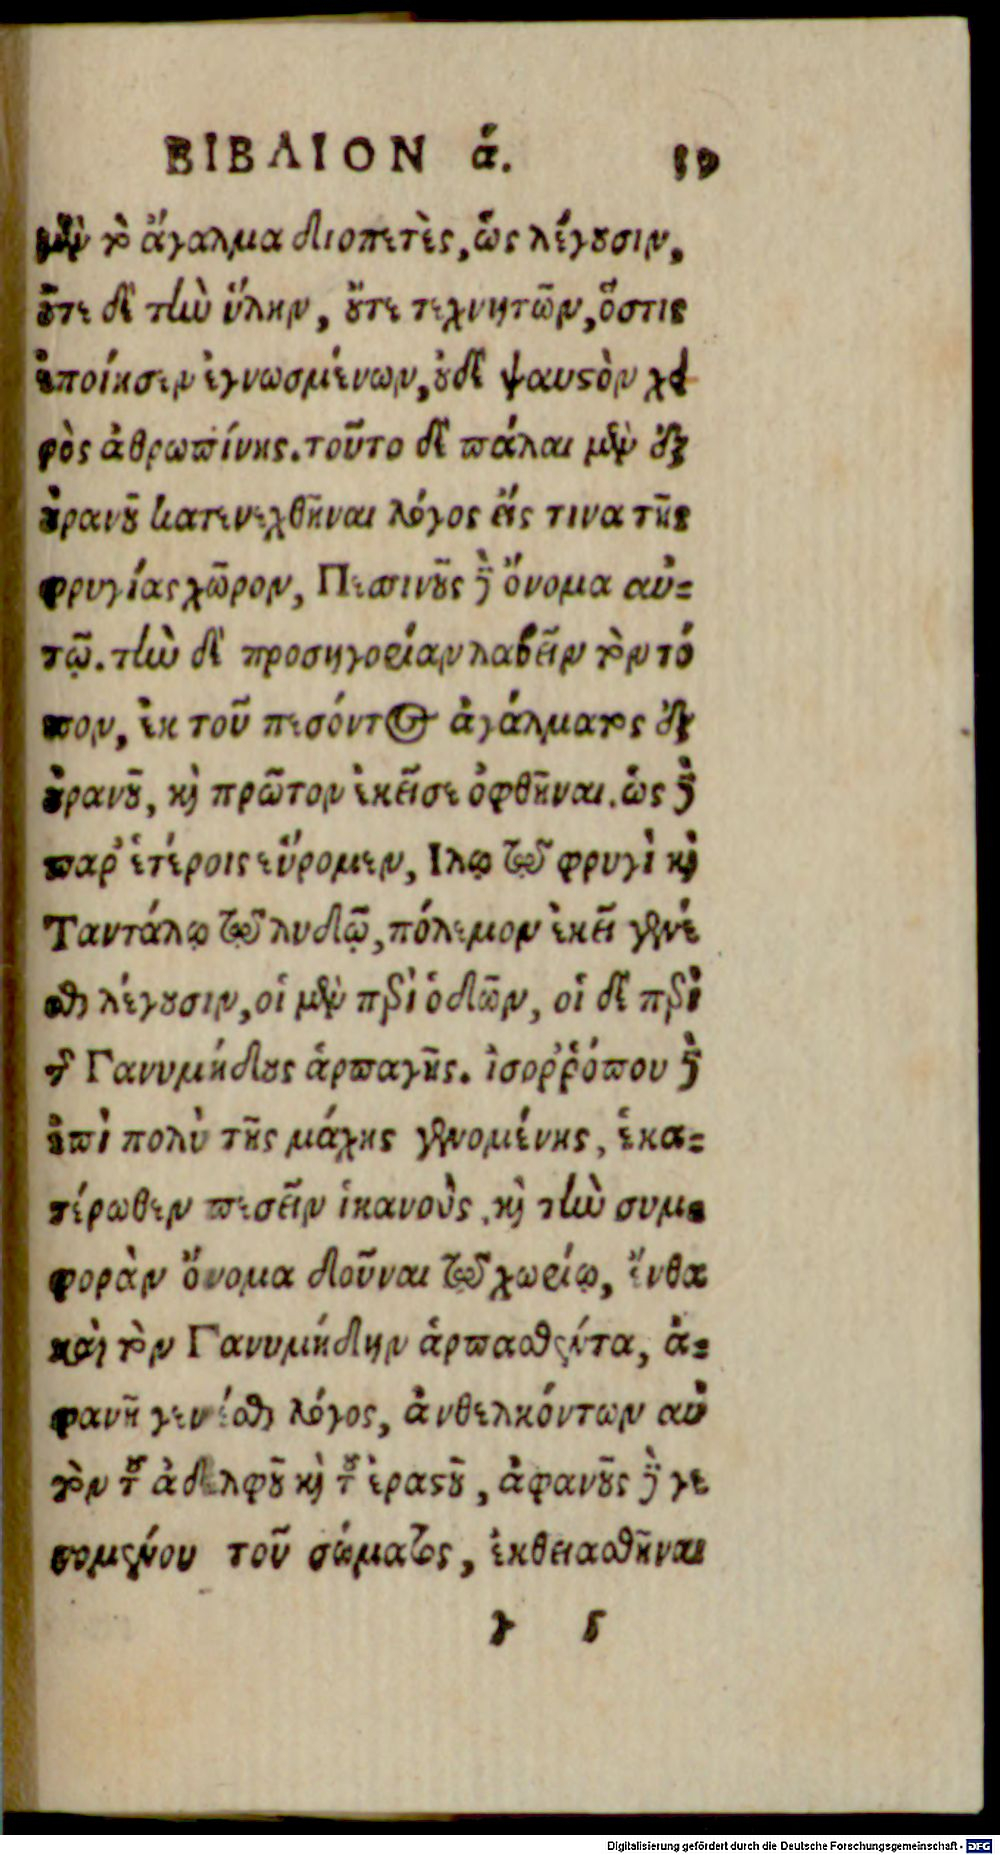 ΒΙΒΛΙΟΝ ά. 19
μὲν τὸ ἄγαλμα διοπετὲς, ὥς λέγουσιν,
οὔτε δὲ τὴν ὕλην, οὔτε τεχνητῶν, ὅστις
ἐποίησεν ἐγνωσμένων, οὐδὲ ψαυστὸν χει
ρὸς ἀθρωπίνης. τοῦτο δὲ πάλαι μὲν ἐξ
οὐρανοῦ κατενεχθῆναι λόγος εἴς τινα τῆς
φρυγίας χῶρον, Πεσινοῦς δὲ ὄνομα αὐ-
τῷ. τὴν δὲ προσηγορίαν λαβεῖν τὸν τό
πον, ἐκ τοῦ πεσόντος ἀγάλματος ἐξ
οὐρανοῦ, καὶ πρῶτον ἐκεῖσε ὀφθῆναι. ὡς δὲ
παρ' ἑτέροις εὕρομεν, Ιλῳ τῷ φρυγὶ καὶ
Ταντάλῳ τῷ λυδῷ, πόλεμον ἐκεῖ γενέ
σθαι λέγουσιν, οἱ μὲν περὶ ὁδῶν, οἱ δὲ περὶ
τῆς Γανυμήδους ἁρπαγῆς. ἰσοῤῥόπου δὲ
ἐπὶ πολὺ τῆς μάχης γενομένης, ἑκα-
τέρωθεν πεσεῖν ἱκανοὺς, καὶ τὴν συμ-
φορὰν ὄνομα δοῦναι τῷ χωρίῳ, ἔνθα
καὶ τὸν Γανυμήδην ἁρπασθέντα, ἀ-
φανῆ γενέσθαι λόγος, ἀνθελκόντων αὐ
τὸν τοῦ ἀδελφοῦ καὶ τοῦ ἐραστοῦ, ἀφανοῦς δὲ γε
νομένου τοῦ σώματος, ἐκθειασθῆναι
γ 5